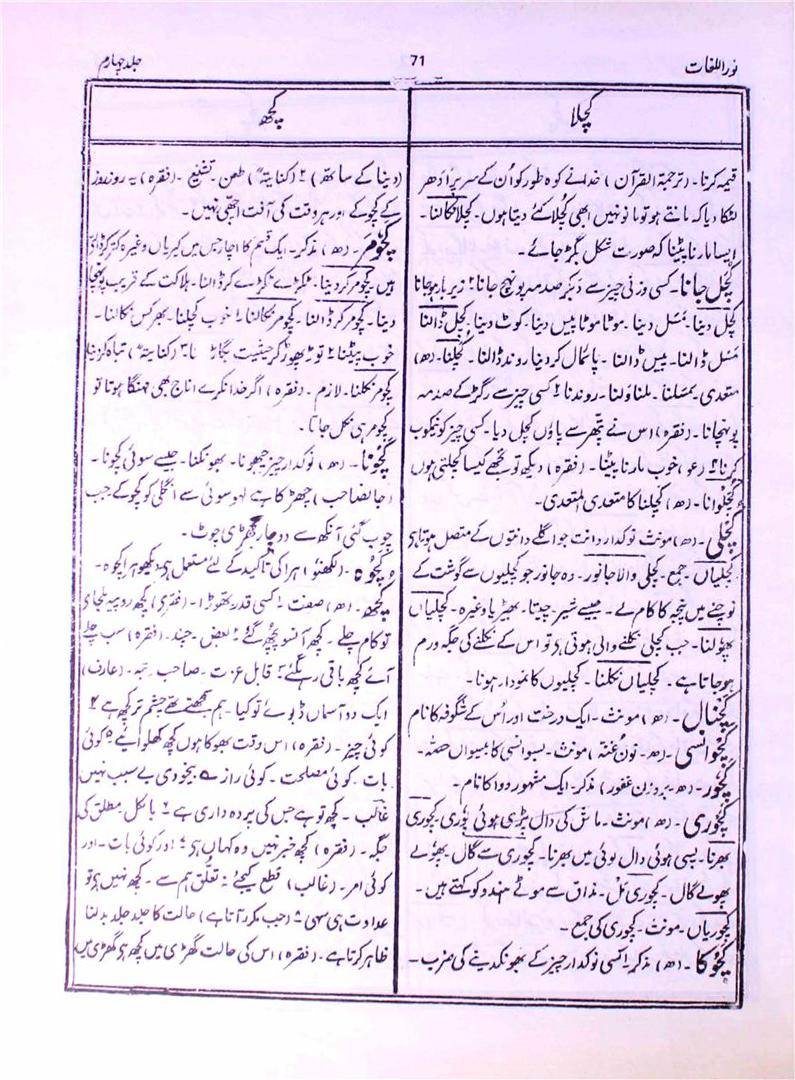 نور اللغات
71
جلد چہارم
کچلا
کچھ
قیمہ کرنا۔ (ترجمۃ القرآن) خدا نے کوہ طور کو اُن کے سر پر اَدھر
لٹکا دیا کہ مانتے ہو تو مانو نہیں ابھی کُچلا کئے دیتا ہوں۔ کچلا نکالنا۔
ایسا مارنا پیٹنا کہ صورت شکل بگڑ جائے۔
کُچل جانا۔ کسی وزنی چیز سے دبکر صدمہ پونہچ جانا
کچل دینا۔ مَسل دینا۔ موٹا موٹا پیس دینا۔ کوٹ دینا۔ کچل ڈالنا
مَسل ڈالنا۔ پیس ڈالنا۔ پائمال کر دینا روند ڈالنا۔ کُچلنا۔ (ھ)
متعدی۔ مسلنا۔ ملنا دَلنا۔ روندنا ۲ کسی چیز سے رگڑ کے صدمہ
پونہچانا۔ (فقرہ) اس نے پتھر سے پاؤں کچل دیا۔ کسی چیز کو نیکوب
کرنا ۳ (عو) خوب مارنا پیٹنا۔ (فقرہ) دیکھ تو تجھے کیسا کچلتی ہوں
کُچلوانا۔ (ھ) کچلنا کا متعدی المتعدی۔
کچلی۔ (ھ) مونث نوکدار دانت جو اگلے دانتوں کے متصل ہوتا ہی
کچلیاں۔ جمع۔ کچلی والا جانور۔ وہ جانور جو کچلیوں سے گوشت کے
نوچنے میں پنجہ کا کام لے۔ جیسے شیر۔ چیتا۔ بھیڑیا وغیرہ۔ کچلیاں
پھولنا۔ جب کچلی نکلنے والی ہوتی ہی تو اس کے نکلنے کی جگہ ورم
ہو جاتا ہے۔ کچلیاں نکلنا۔ کچلیوں کا نمودار ہونا۔
کچنال۔ (ھ) مونث۔ ایک درخت اور اُس کے شگوفہ کا نام
کچوانسی۔ (ھ۔ نون غنہ) مونث۔ بسوانسی کا بیسواں حصہ۔
کچور۔ (ھ۔ بروزن غفور) مذکر۔ ایک مشہور دوا کا نام۔
کچوری۔ (ھ) مونث۔ ماش کی دال پڑی ہوئی پوری کچوری
بھرنا۔ پسی ہوئی دال لوئی میں بھرنا۔ کچوری سے گال۔ پھولے
پھولے گال۔ کچوری مَل۔ مذاق سے موٹے ہندو کو کہتے ہیں۔
کچوریاں۔ مونث۔ کچوری کی جمع۔
کچوکا۔ (ھ) مذکر ۱ کسی نوکدار چیز کے بھونکدینے کی ضرب۔
(دینا کے ساتھ) ۲ (کنایۃً) طعن۔ تشنیع۔ (فقرہ) یہ روز روز
کے کچوکے اور ہر وقت کی آفت اچھی نہیں۔
کچومر۔ (ھ) مذکر۔ ایک قسم کا اچار جس میں کیریاں وغیرہ کتر کر ڈالتے
ہیں۔ کچومر کر دینا۔ ٹکڑے ٹکڑے کر ڈالنا۔ ہلاکت کے قریب پہنچا
دینا۔ کچومر کر ڈالنا۔ کچومر نکالنا ۱ خوب کچلنا۔ بھرکس نکالنا۔
خوب پیٹنا ۲ توڑ پھوڑ کر حیثیت بگاڑنا ۳ (کنایۃً) تباہ کر دینا
کچومر نکلنا۔ لازم۔ (فقرہ) اگر خدا نکرے اناج بھی مہنگا ہوتا تو
کچومر ہی نکل جاتا۔
کچونا۔ (ھ) نوکدار چیز چبھونا۔ بھونکنا۔ جیسے سوئی کچونا۔
(جانصاحب) چھڑکا ہے لہو سوئی سے انگلی کو کچو کے جب
چوب گئی آنکھ سے دو چار گھڑی چوٹ۔
کچوہ۔ (لکھنؤ) ہرا کی تاکید کے لئے مستعمل ہی دیکھو ہرا کچوہ۔
کچھ۔ (ھ) صفت ۱ کسی قدر۔ تھوڑا۔ (فقرہ) کچھ روپیہ ملجائے
تو کام چلے۔ کچھ آنسو پُچھ گئے ۲ بعض۔ چند۔ (فقرہ) سب چلے
آئے کچھ باقی رہ گئے ۳ قابل قدر۔ صاحب رتبہ۔ (عارف)
ایک دو آسماں ڈبوئے تو کیا۔ ہم سمجھتے تھے چشم تر کچھ ہے ۴
کوئی چیز۔ (فقرہ) اس وقت بھوکا ہوں کچھ کھلوایئے ۵ کوئی
بات۔ کوئی مصلحت۔ کوئی راز۔ بیخودی بے سبب نہیں
غالب۔ کچھ تو ہے جس کی پردہ داری ہے ۶ بالکل۔ مطلق کی
جگہ۔ (فقرہ) کچھ خبر نہیں وہ کہاں ہی ۷ اور کوئی بات۔ اور
کوئی امر۔ (غالب) قطع کیجئے نہ تعلق ہم سے۔ کچھ نہیں ہی تو
عداوت ہی سہی ۸ (جب مکرر آتا ہے) حالت کا جلد جلد بدلنا
ظاہر کرتا ہے۔ (فقرہ) اس کی حالت گھڑی میں کچھ ہی گھڑی میں